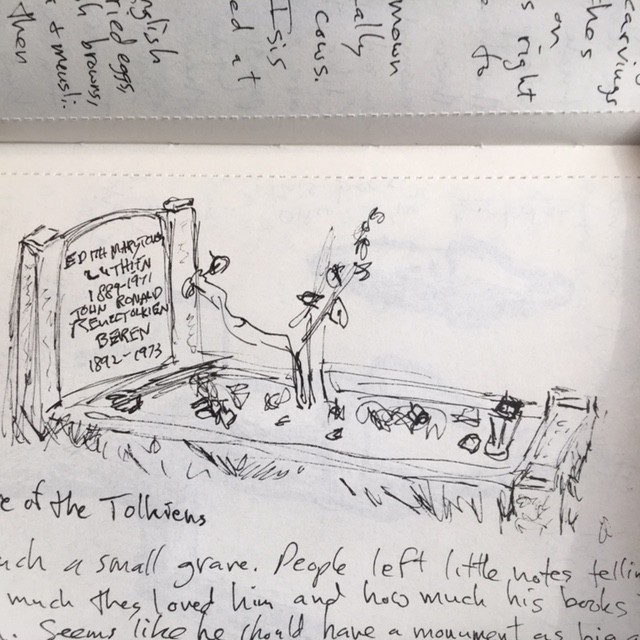 carvings
on
s right
to
mown
ally
cows.
Isis
ed at
nglish
ried eggs,
sh browns,
+ muesli.
then
EDITH MARY
LUTHIEN
1889-1971
JOHN RONALD
REUEL TOLKIEN
BEREN
1892-1973
e of the Tolkiens
uch a small grave. People left little notes tellin
much they loved him and how much his books
. Seems like he should have a monument as big